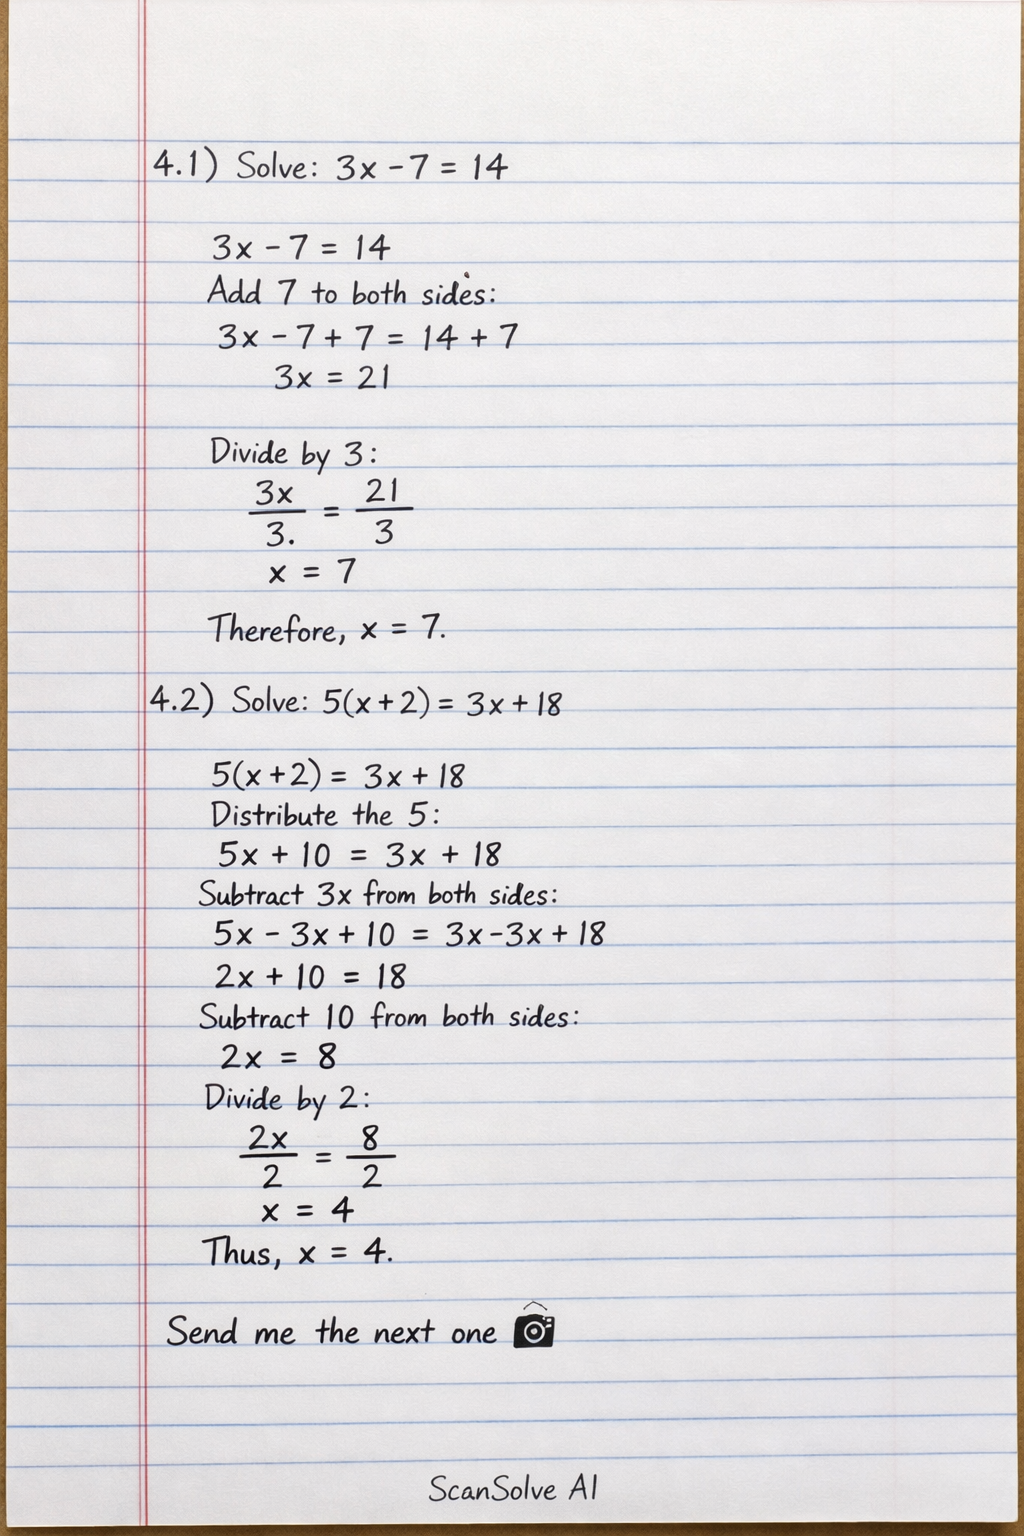 4.1) Solve: 3x - 7 = 14
3x - 7 = 14
Add 7 to both sides:
3x - 7 + 7 = 14 + 7
3x = 21
Divide by 3:
3x/3. = 21/3
x = 7
Therefore, x = 7.
4.2) Solve: 5(x+2) = 3x + 18
5(x+2) = 3x + 18
Distribute the 5:
5x + 10 = 3x + 18
Subtract 3x from both sides:
5x - 3x + 10 = 3x - 3x + 18
2x + 10 = 18
Subtract 10 from both sides:
2x = 8
Divide by 2:
2x/2 = 8/2
x = 4
Thus, x = 4.
Send me the next one 📷
ScanSolve AI